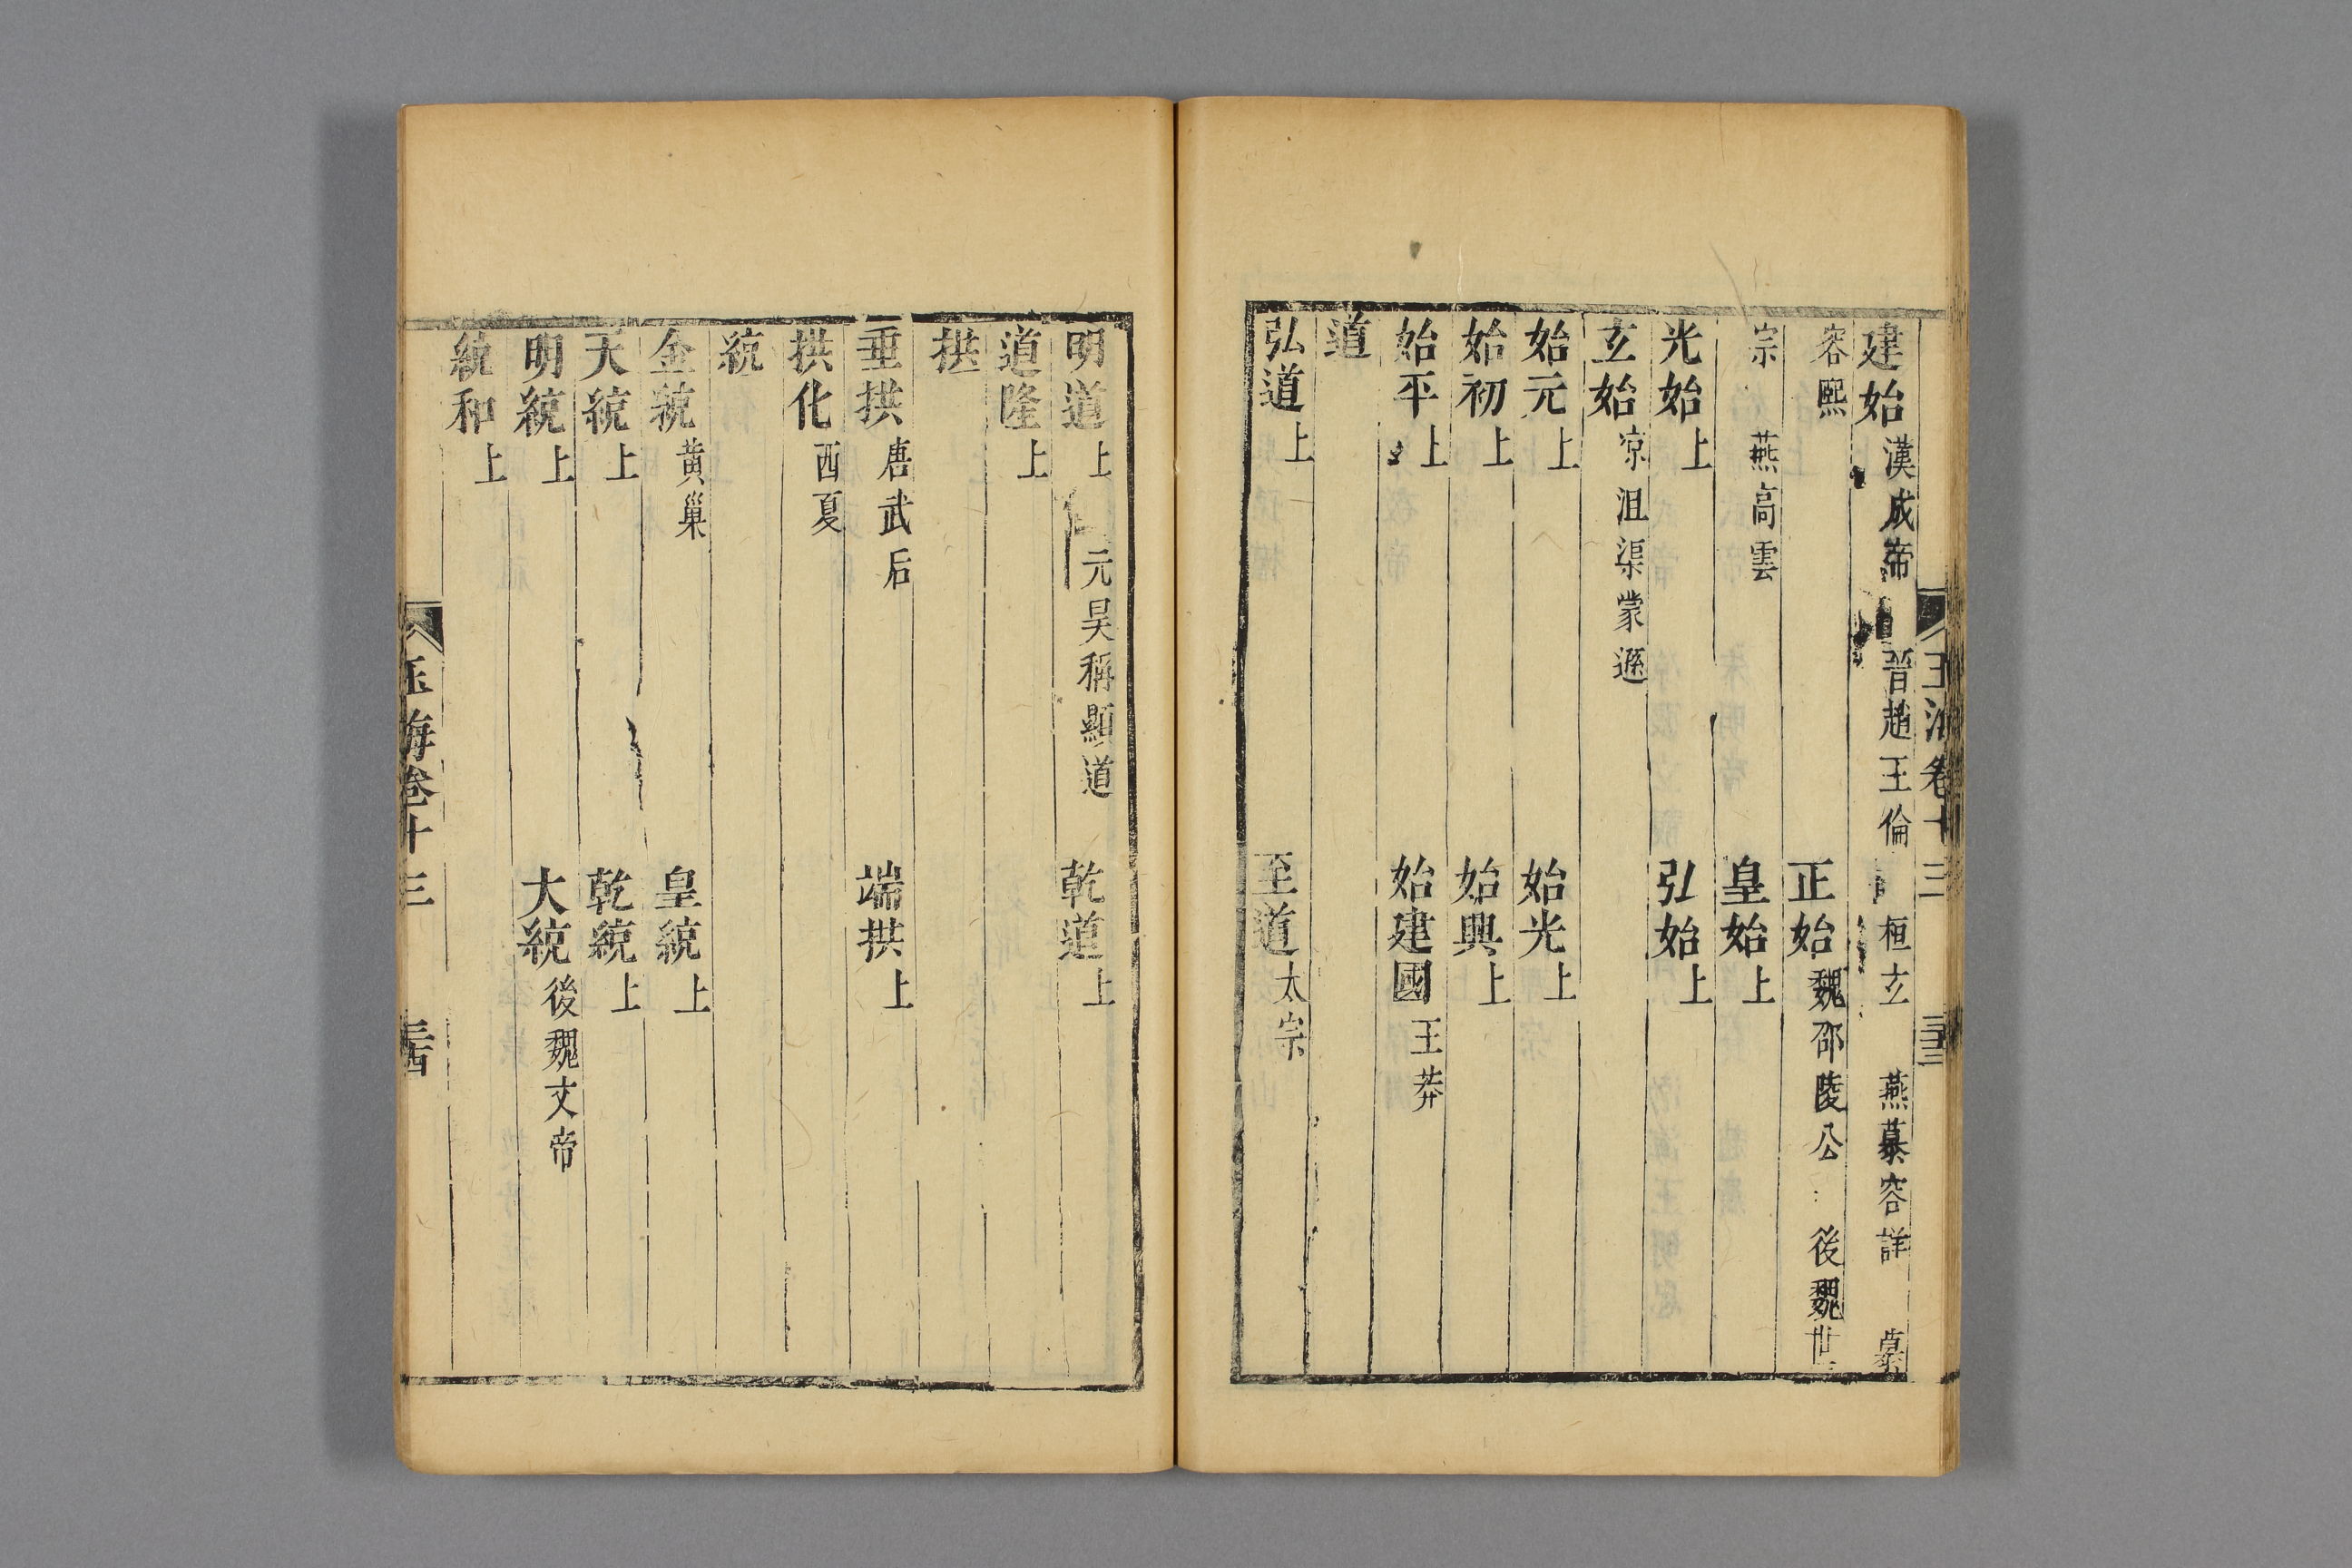 建始漢成帝 晉趙王倫 桓玄 燕慕容詳 慕
容熙 正始魏邵陵公 後魏世
宗 燕高雲 皇始上
光始上 弘始上
玄始凉沮渠蒙遜
始元上 始光上
始初上 始興上
始平上 始建國王莽
道
弘道上 至道太宗
玉海卷十三 三十三
明道上 元昊稱顯道 乾道上
道隆上
拱
垂拱唐武后 端拱上
拱化西夏
統
金統黄巢 皇統上
天統上 乾統上
明統上 大統後魏文帝
統和上
玉海卷十三 三十四